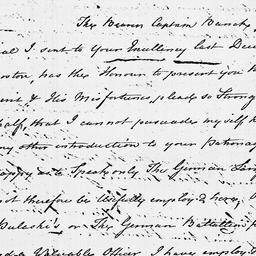 The Bearer Captain Baunch,
al I sent to Your Excellency last Dece
oston, has the Honour to present you h
erit & His Misfortunes, plead so Strong
half, that I cannot persuade my self
ny other introduction to your Patronag
appy as to Speak only The German Lan
not therefore be Usefully employ'd here,
Pulaski's or The German Battalion
nd a Valuable Officer I have employ